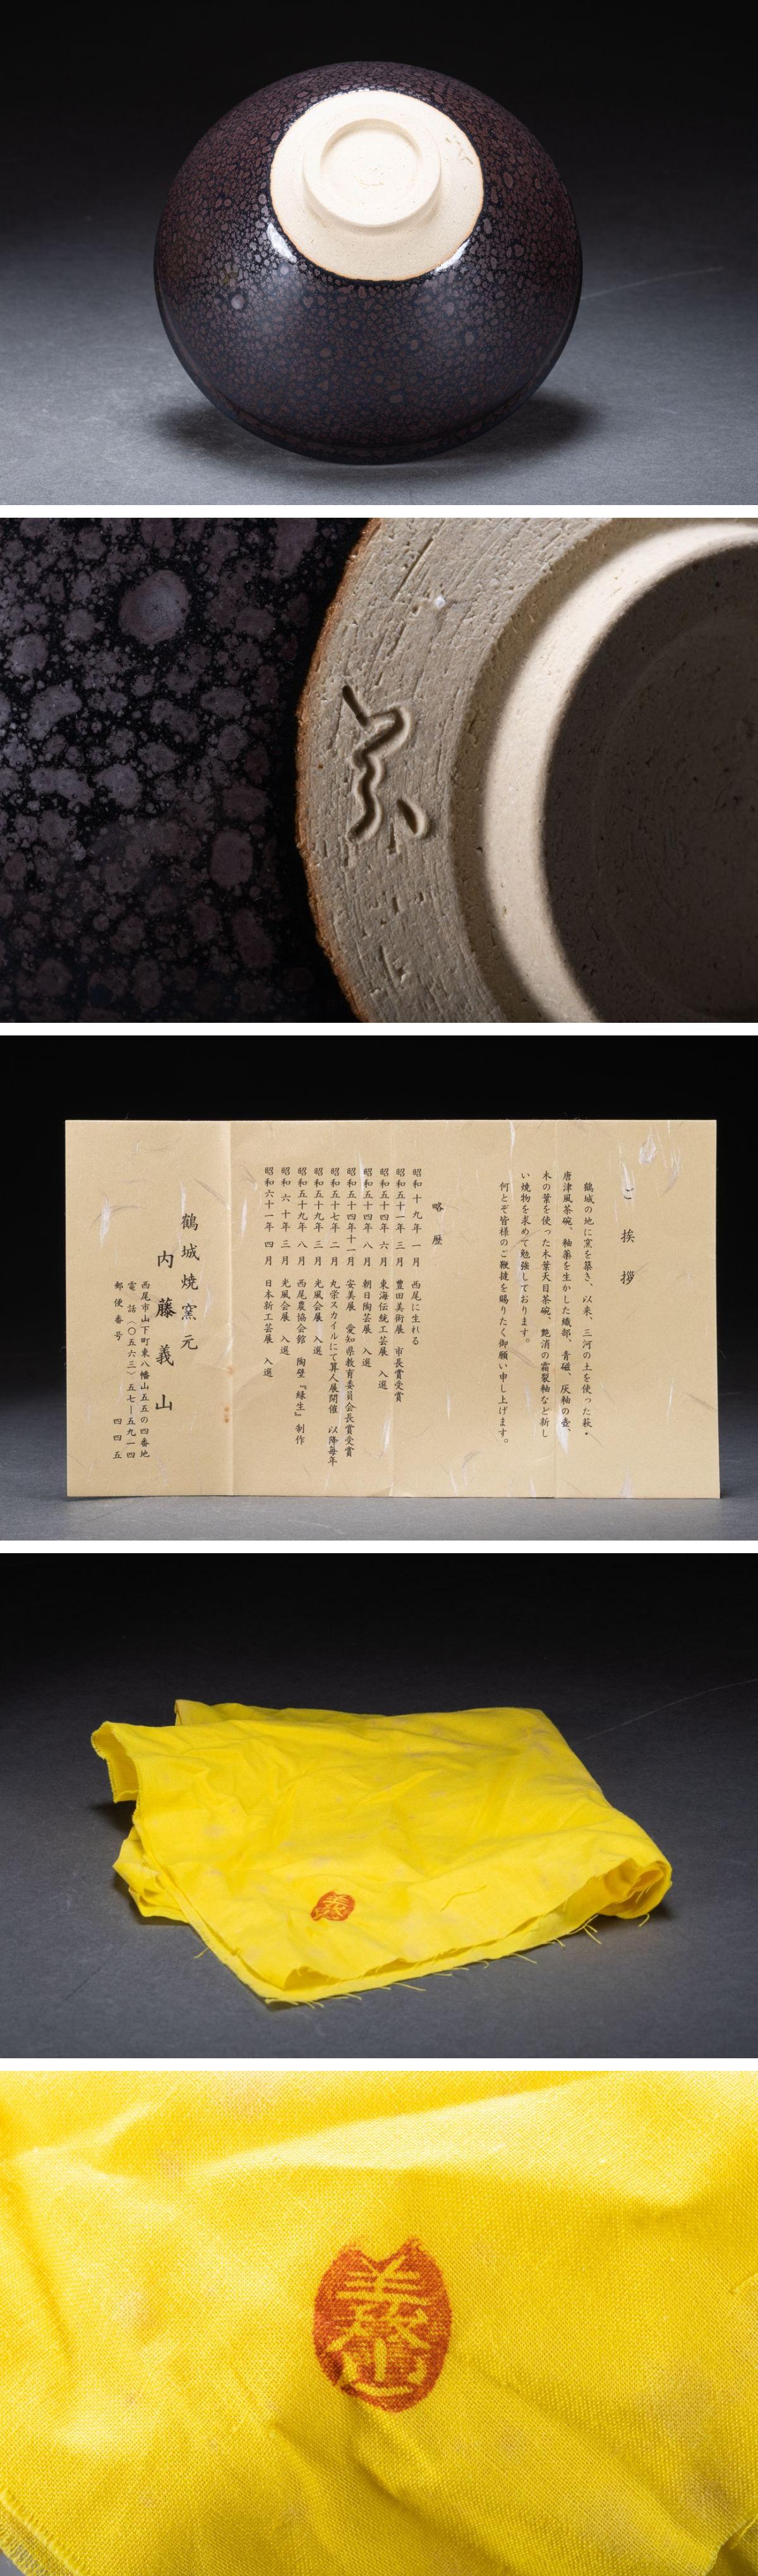 ご挨拶
鶴城の地に窯を築き、以来、三河の土を使った萩・
唐津風茶碗、釉薬を生かした織部、青磁、灰釉の壺、
木の葉を使った木葉天目茶碗、艶消の霜裂釉など新し
い焼物を求めて勉強しております。
何とぞ皆様のご鞭撻を賜りたく御願い申し上げます。
略歴
昭和十九年一月 西尾に生れる
昭和五十一年三月 豊田美術展 市長賞受賞
昭和五十四年六月 東海伝統工芸展 入選
昭和五十四年八月 朝日陶芸展 入選
昭和五十四年十一月 安美展 愛知県教育委員会長賞受賞
昭和五十七年二月 丸栄スカイルにて算人展開催 以降毎年
昭和五十九年三月 光風会展 入選
昭和五十九年八月 西尾農協会館 陶壁『緑生』制作
昭和六十年三月 光風会展 入選
昭和六十一年四月 日本新工芸展 入選
鶴城焼窯元
内藤義山
西尾市山下町東八幡山五五の四番地
電話〈〇五六三〉五七―五九一四
郵便番号 四四五
義山